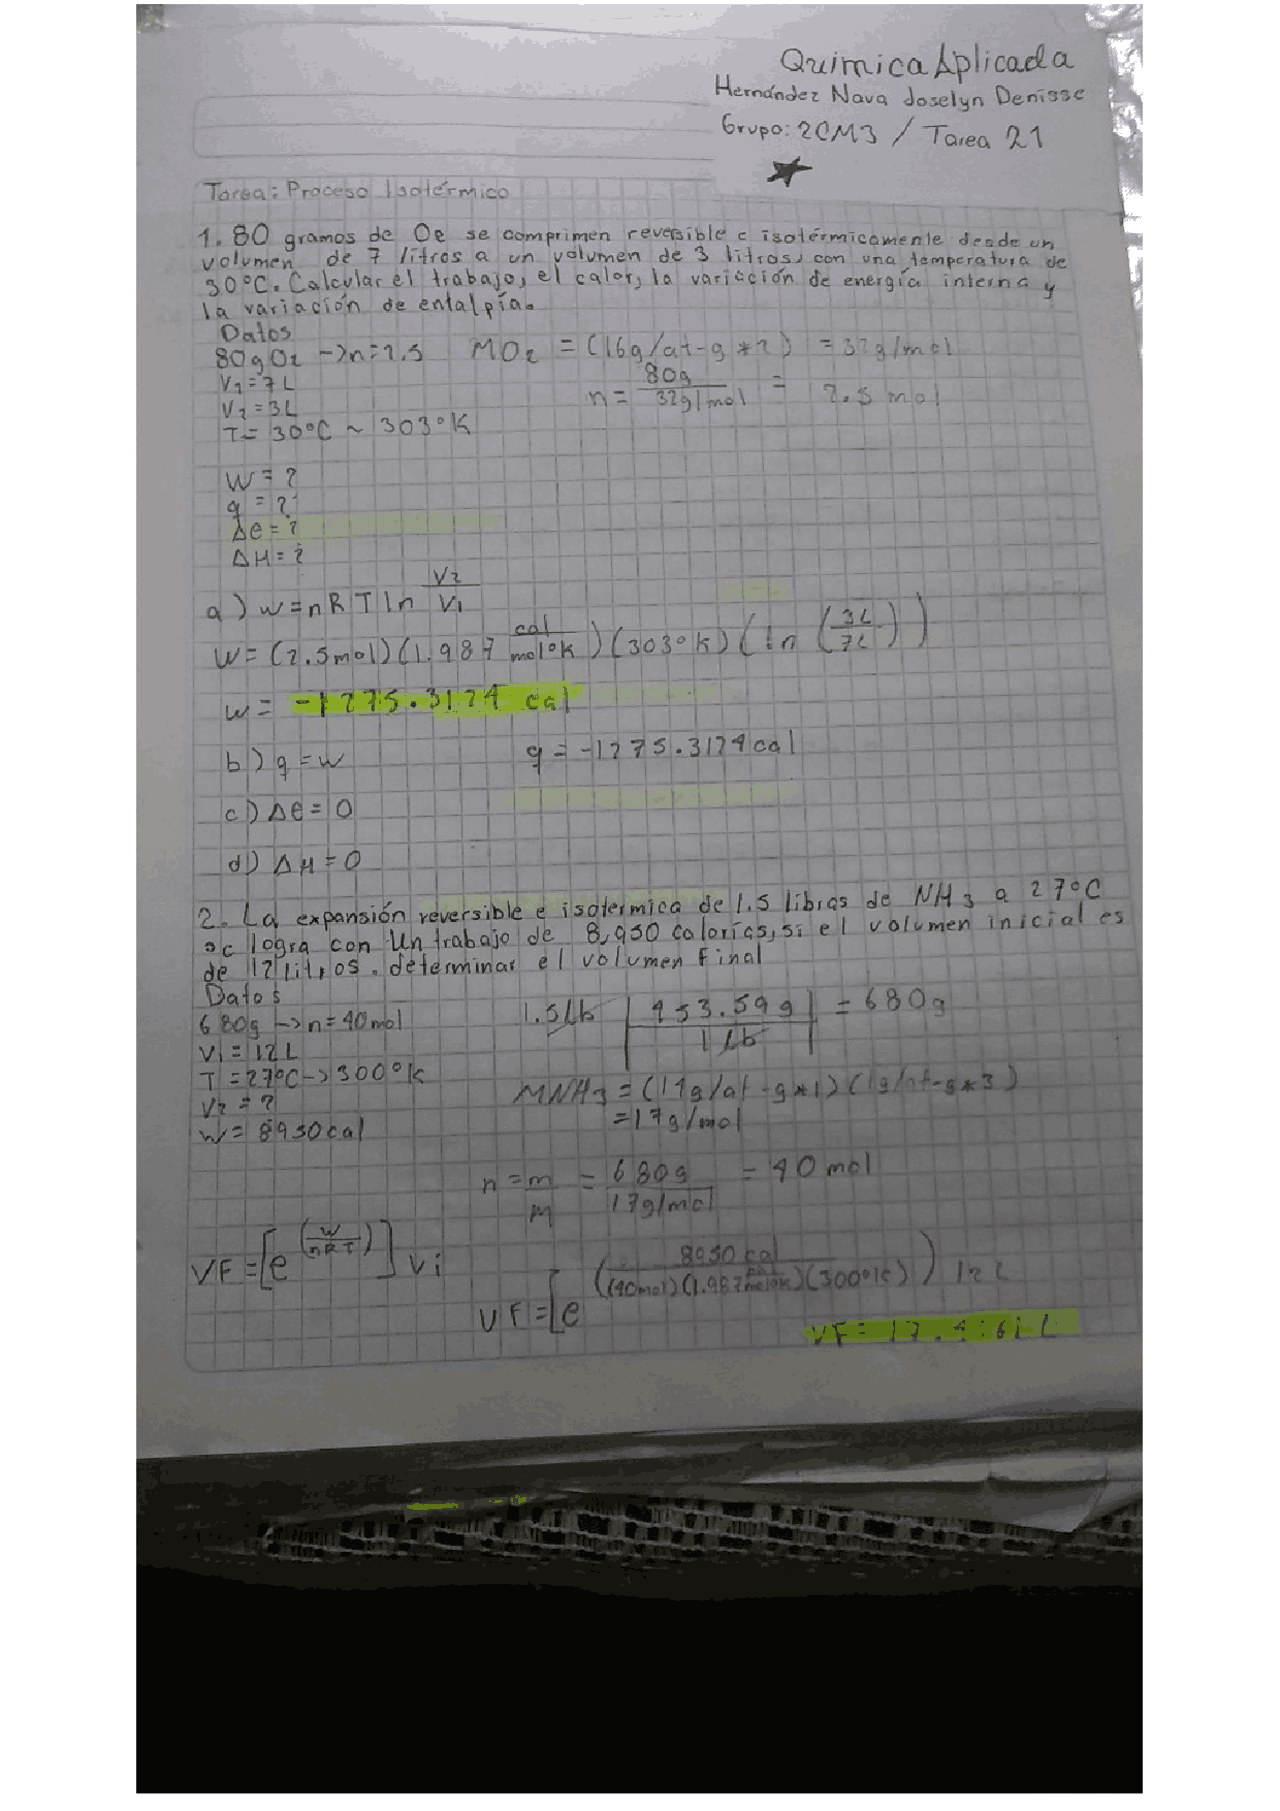 Química Aplicada
Hernández Nava Joselyn Denisse
Grupo: 2CM3 / Tarea 21
Tarea: Proceso Isotérmico
1. 80 gramos de O2 se comprimen reversible e isotérmicamente desde un
volumen de 7 litros a un volumen de 3 litros, con una temperatura de
30°C. Calcular el trabajo, el calor, la variación de energía interna y
la variación de entalpía.
Datos
80g O2 -> n=2.5 MO2 = (16g/at-g*2) = 32g/mol
V1=7L
n= 80g / 32g/mol = 2.5 mol
V2=3L
T= 30°C ~ 303°K
W=?
q=?
Δe=?
ΔH=?
a) w=nRTln V2/V1
W= (2.5mol)(1.987 cal/mol°K)(303°K)(ln(3L/7L))
w= -1275.3174 cal
b) q=w q=-1275.3174cal
c) Δe=0
d) ΔH=0
2. La expansión reversible e isotermica de 1.5 libras de NH3 a 27°C
se logra con un trabajo de 8,950 calorías, si el volumen inicial es
de 12 litros. determinar el volumen Final
Datos
680g -> n=40mol 1.5Lb | 453.59g / 1Lb | = 680g
Vi=12L
T=27°C->300°K
MNH3=(14g/at-g*1)(1g/at-g*3)
V2=?
=17g/mol
W=8950cal
n=m/M = 680g / 17g/mol = 40mol
VF=[e^(W/nRT)] Vi
VF=[e^(8950 cal/(40mol)(1.987 cal/mol°K)(300°K)) 12L
VF= 17. L